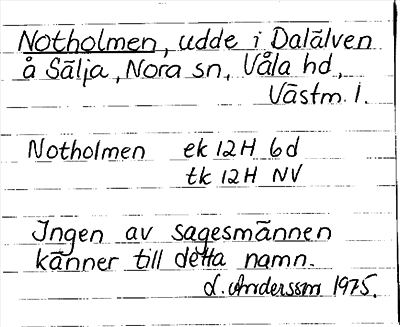 Notholmen, udde i Dalälven
å Sälja, Nora sn, Våla hd,
Västm. l.
Notholmen ek 12H 6d
tk 12H NV
Ingen av sagesmännen
känner till detta namn.
L. Andersson 1975.